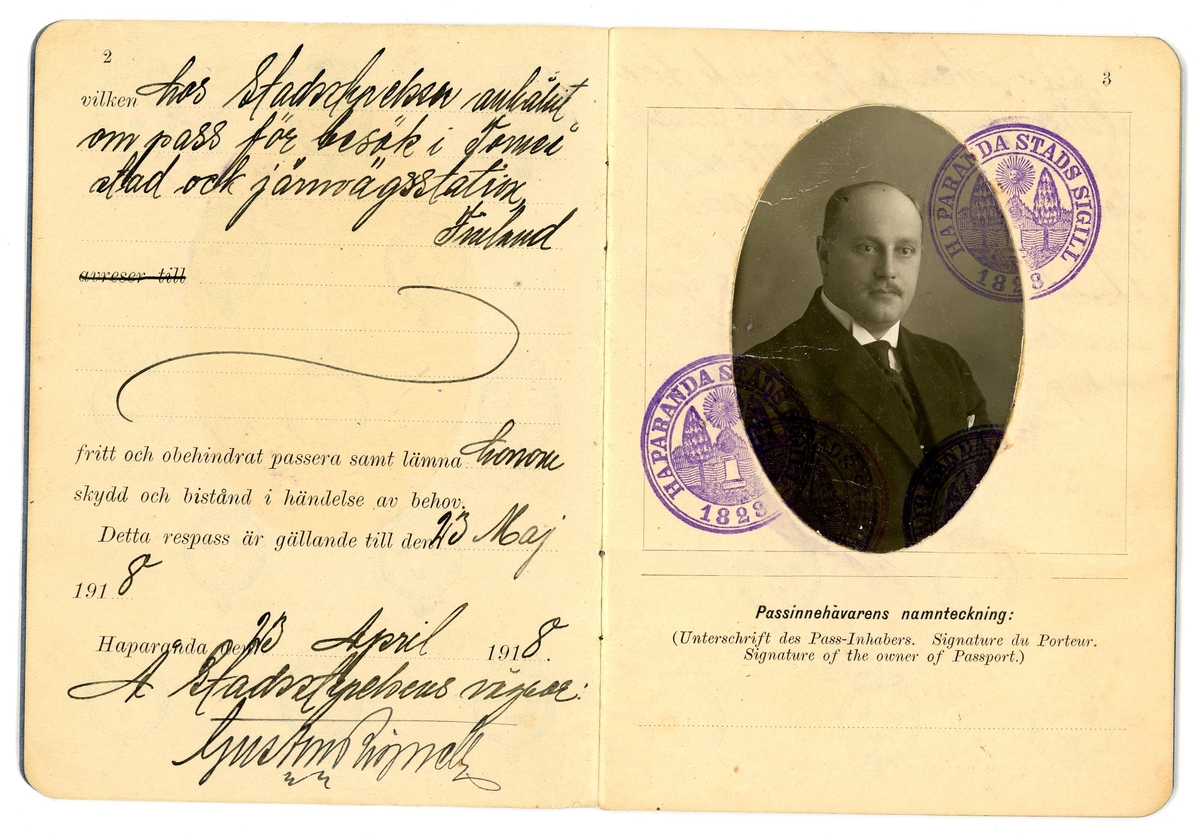 2
vilken hos Stadsstyrelsen anhållit
om pass för besök i Torneå
stad och järnvägsstation,
Finland
avreser till
fritt och obehindrat passera samt lämna honom
skydd och bistånd i händelse av behov.
Detta respass är gällande till den 23 Maj
1918
Haparanda den 23 April 1918.
Å Stadsstyrelsens vägnar:
Gustav
3
HAPARANDA STADS SIGILL
1828
HAPARANDA STADS
1828
Passinnehavarens namnteckning:
(Unterschrift des Pass-Inhabers. Signature du Porteur.
Signature of the owner of Passport.)